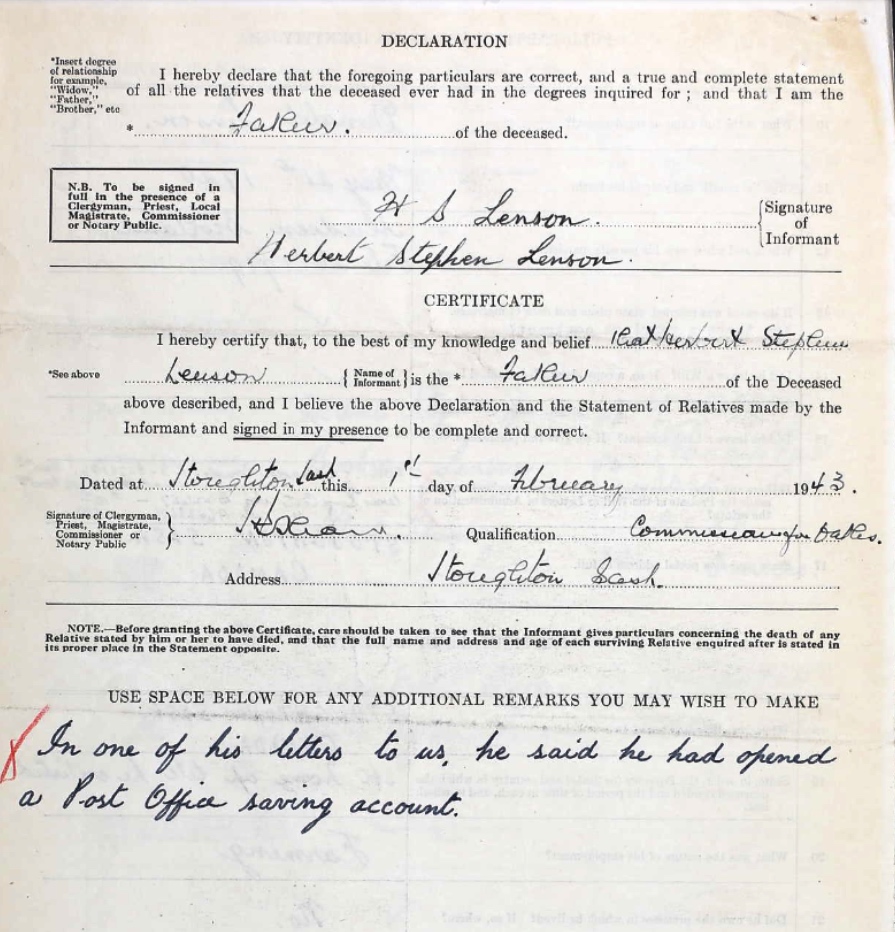 DECLARATION
*Insert degree
of relationship
for example,
"Widow,"
"Father,"
"Brother," etc
I hereby declare that the foregoing particulars are correct, and a true and complete statement
of all the relatives that the deceased ever had in the degrees inquired for ; and that I am the
* Father. of the deceased.
N.B. To be signed in
full in the presence of a
Clergyman, Priest, Local
Magistrate, Commissioner
or Notary Public.
H S Lenson.
Signature
of
Informant
Herbert Stephen Lenson.
CERTIFICATE
I hereby certify that, to the best of my knowledge and belief that Herbert Stephen
*See above Lenson { Name of Informant } is the * Father of the Deceased
above described, and I believe the above Declaration and the Statement of Relatives made by the
Informant and signed in my presence to be complete and correct.
Dated at Stoughton Sask this 1st day of February 1943.
Signature of Clergyman,
Priest, Magistrate,
Commissioner or
Notary Public
Qualification Commissioner for Oaths.
Address Stoughton Sask.
NOTE.—Before granting the above Certificate, care should be taken to see that the Informant gives particulars concerning the death of any
Relative stated by him or her to have died, and that the full name and address and age of each surviving Relative enquired after is stated in
its proper place in the Statement opposite.
USE SPACE BELOW FOR ANY ADDITIONAL REMARKS YOU MAY WISH TO MAKE
In one of his letters to us, he said he had opened
a Post Office saving account.